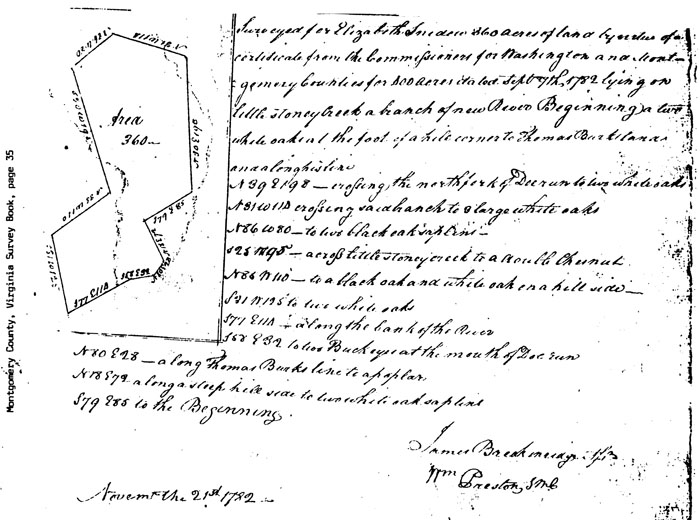 Montgomery County, Virginia Survey Book, page 35
Area
360
Surveyed for Elizabeth Snidow 360 Acres of land by virtue of a
certificate from the Commissioners for Washington and Mont-
gomery Counties for 400 acres dated Sept 7th, 1782 lying on
little stoney Creek a branch of new River Beginning a two
white oaks at the foot of a hill corner to Thomas Burks land
and along his line
N 39 E 198 — crossing the north fork of Doe run to two white oaks
N 81 W 110 crossing said branch to 2 large white oaks
N 86 W 80 — to two black oak saplins —
S 25 W 95 — across little stoney creek to a double Chesnut
N 85 W 110 — to a black oak and white oak on a hill side —
S 31 W 125 to two white oaks
S 77 E 110 — along the bank of the River
S 58 E 32 to two Buckeyes at the mouth of Doe run
N 80 E 28 — along Thomas Burks line to a poplar
N 18 E 72 along a steep hill side to two white oak saplins
S 79 E 85 to the Beginning.
James Breckenridge
Wm Preston, S M C
Novemr the 21st 1782
S 77 E 110